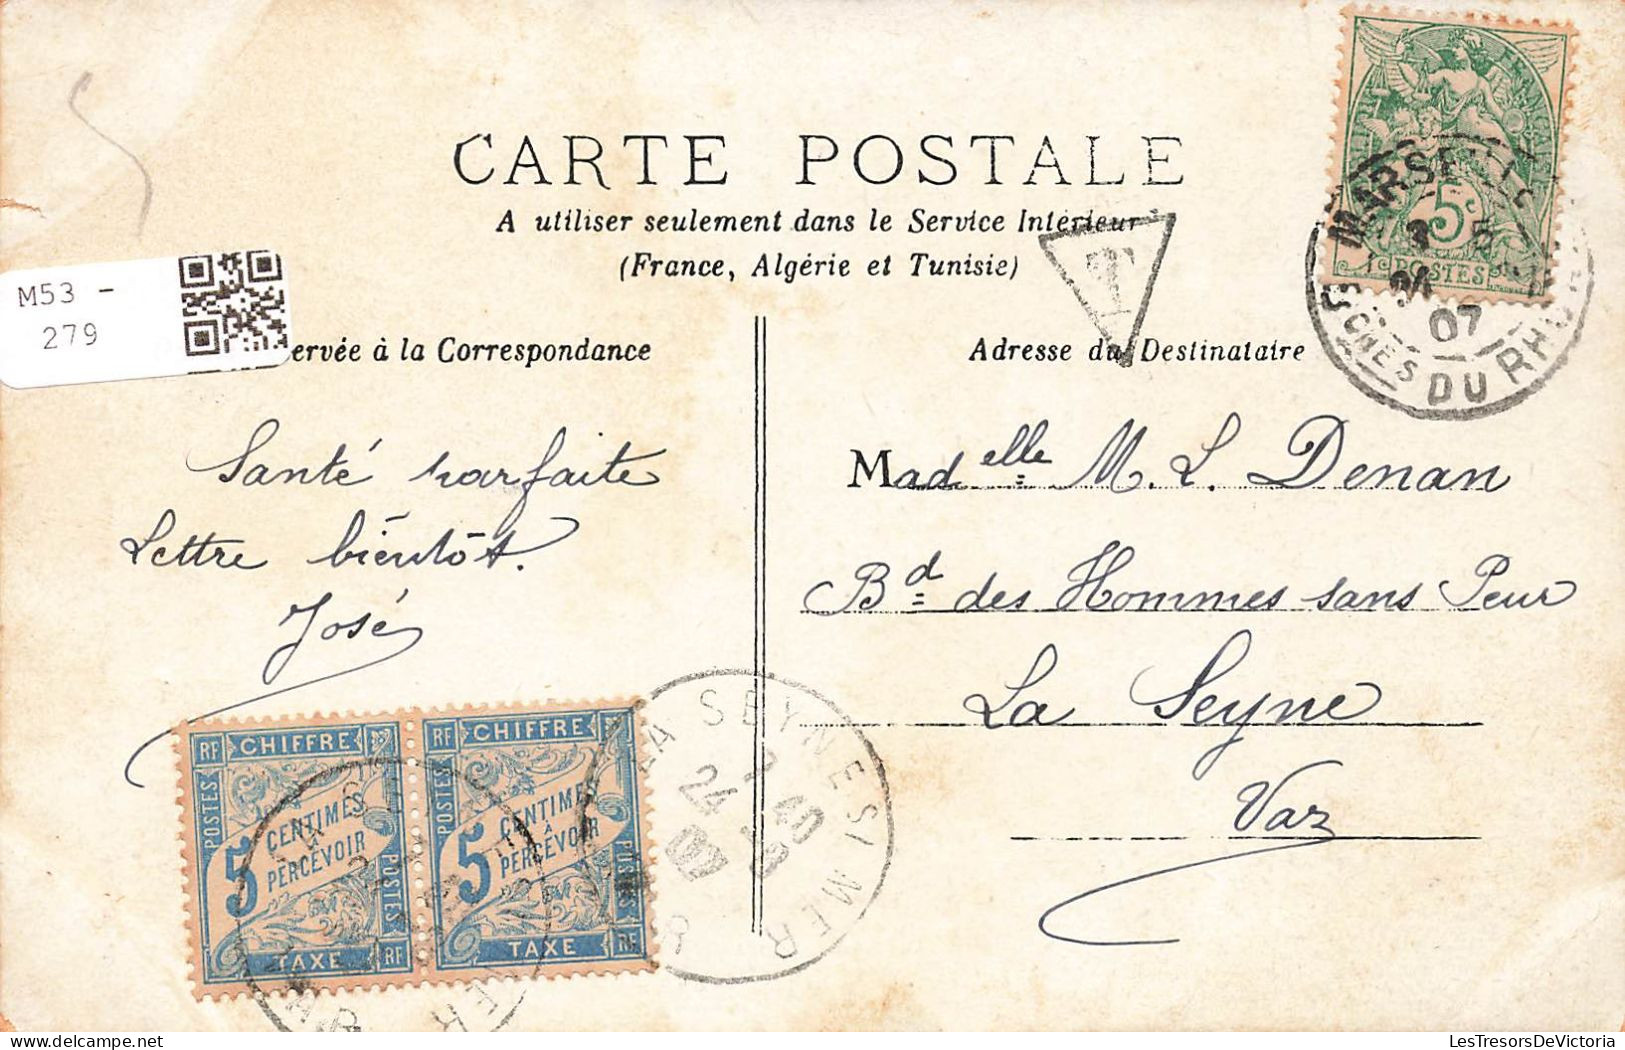 CARTE POSTALE
A utiliser seulement dans le Service Intérieur
(France, Algérie et Tunisie)
T
M53 -
279
ervée à la Correspondance
Santé parfaite
Lettre bientôt.
José
Adresse du Destinataire
Mad elle M. L. Denan
Bd des Hommes sans Peur
La Seyne
Var
5c
POSTES
MARSEILLE
3 5
24
07
CHES DU RHONE
RF CHIFFRE
POSTES
5 CENTIMES
À
PERCEVOIR
POSTES
TAXE RF
RF CHIFFRE
POSTES
5 CENTIMES
À
PERCEVOIR
POSTES
TAXE RF
LA SEYNE S/ MER
7 40
24 -3
07
LesTresorsDeVictoria